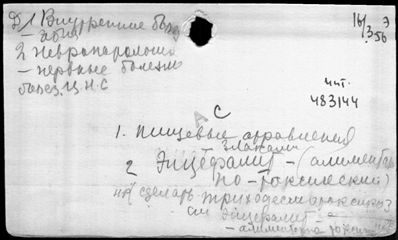 Д 1 Внутренние бол
16/3 56 Э
2 Невропатология
- нервные болезни
болез. Ц.Н.С
чит.
483144
А С
1. пищевые отравления
злаками
2 Энцефалит - (алиментар
но-токсический)
сделать
см Энцефалит - а
- алиментарно токсич